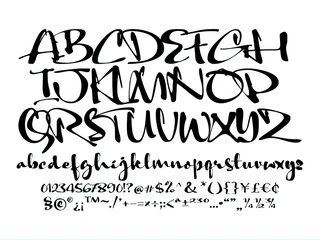 ABCDEFGH
IJKLMNOP
QRSTUVWXYZ
abcdefghijklmnopqrstuvwxyz
0123456789!?@#$%^&*(){}¥£€¢
§©®¿¡™~./'+-=×÷;:<ª±²³º...•“”„¼½¾